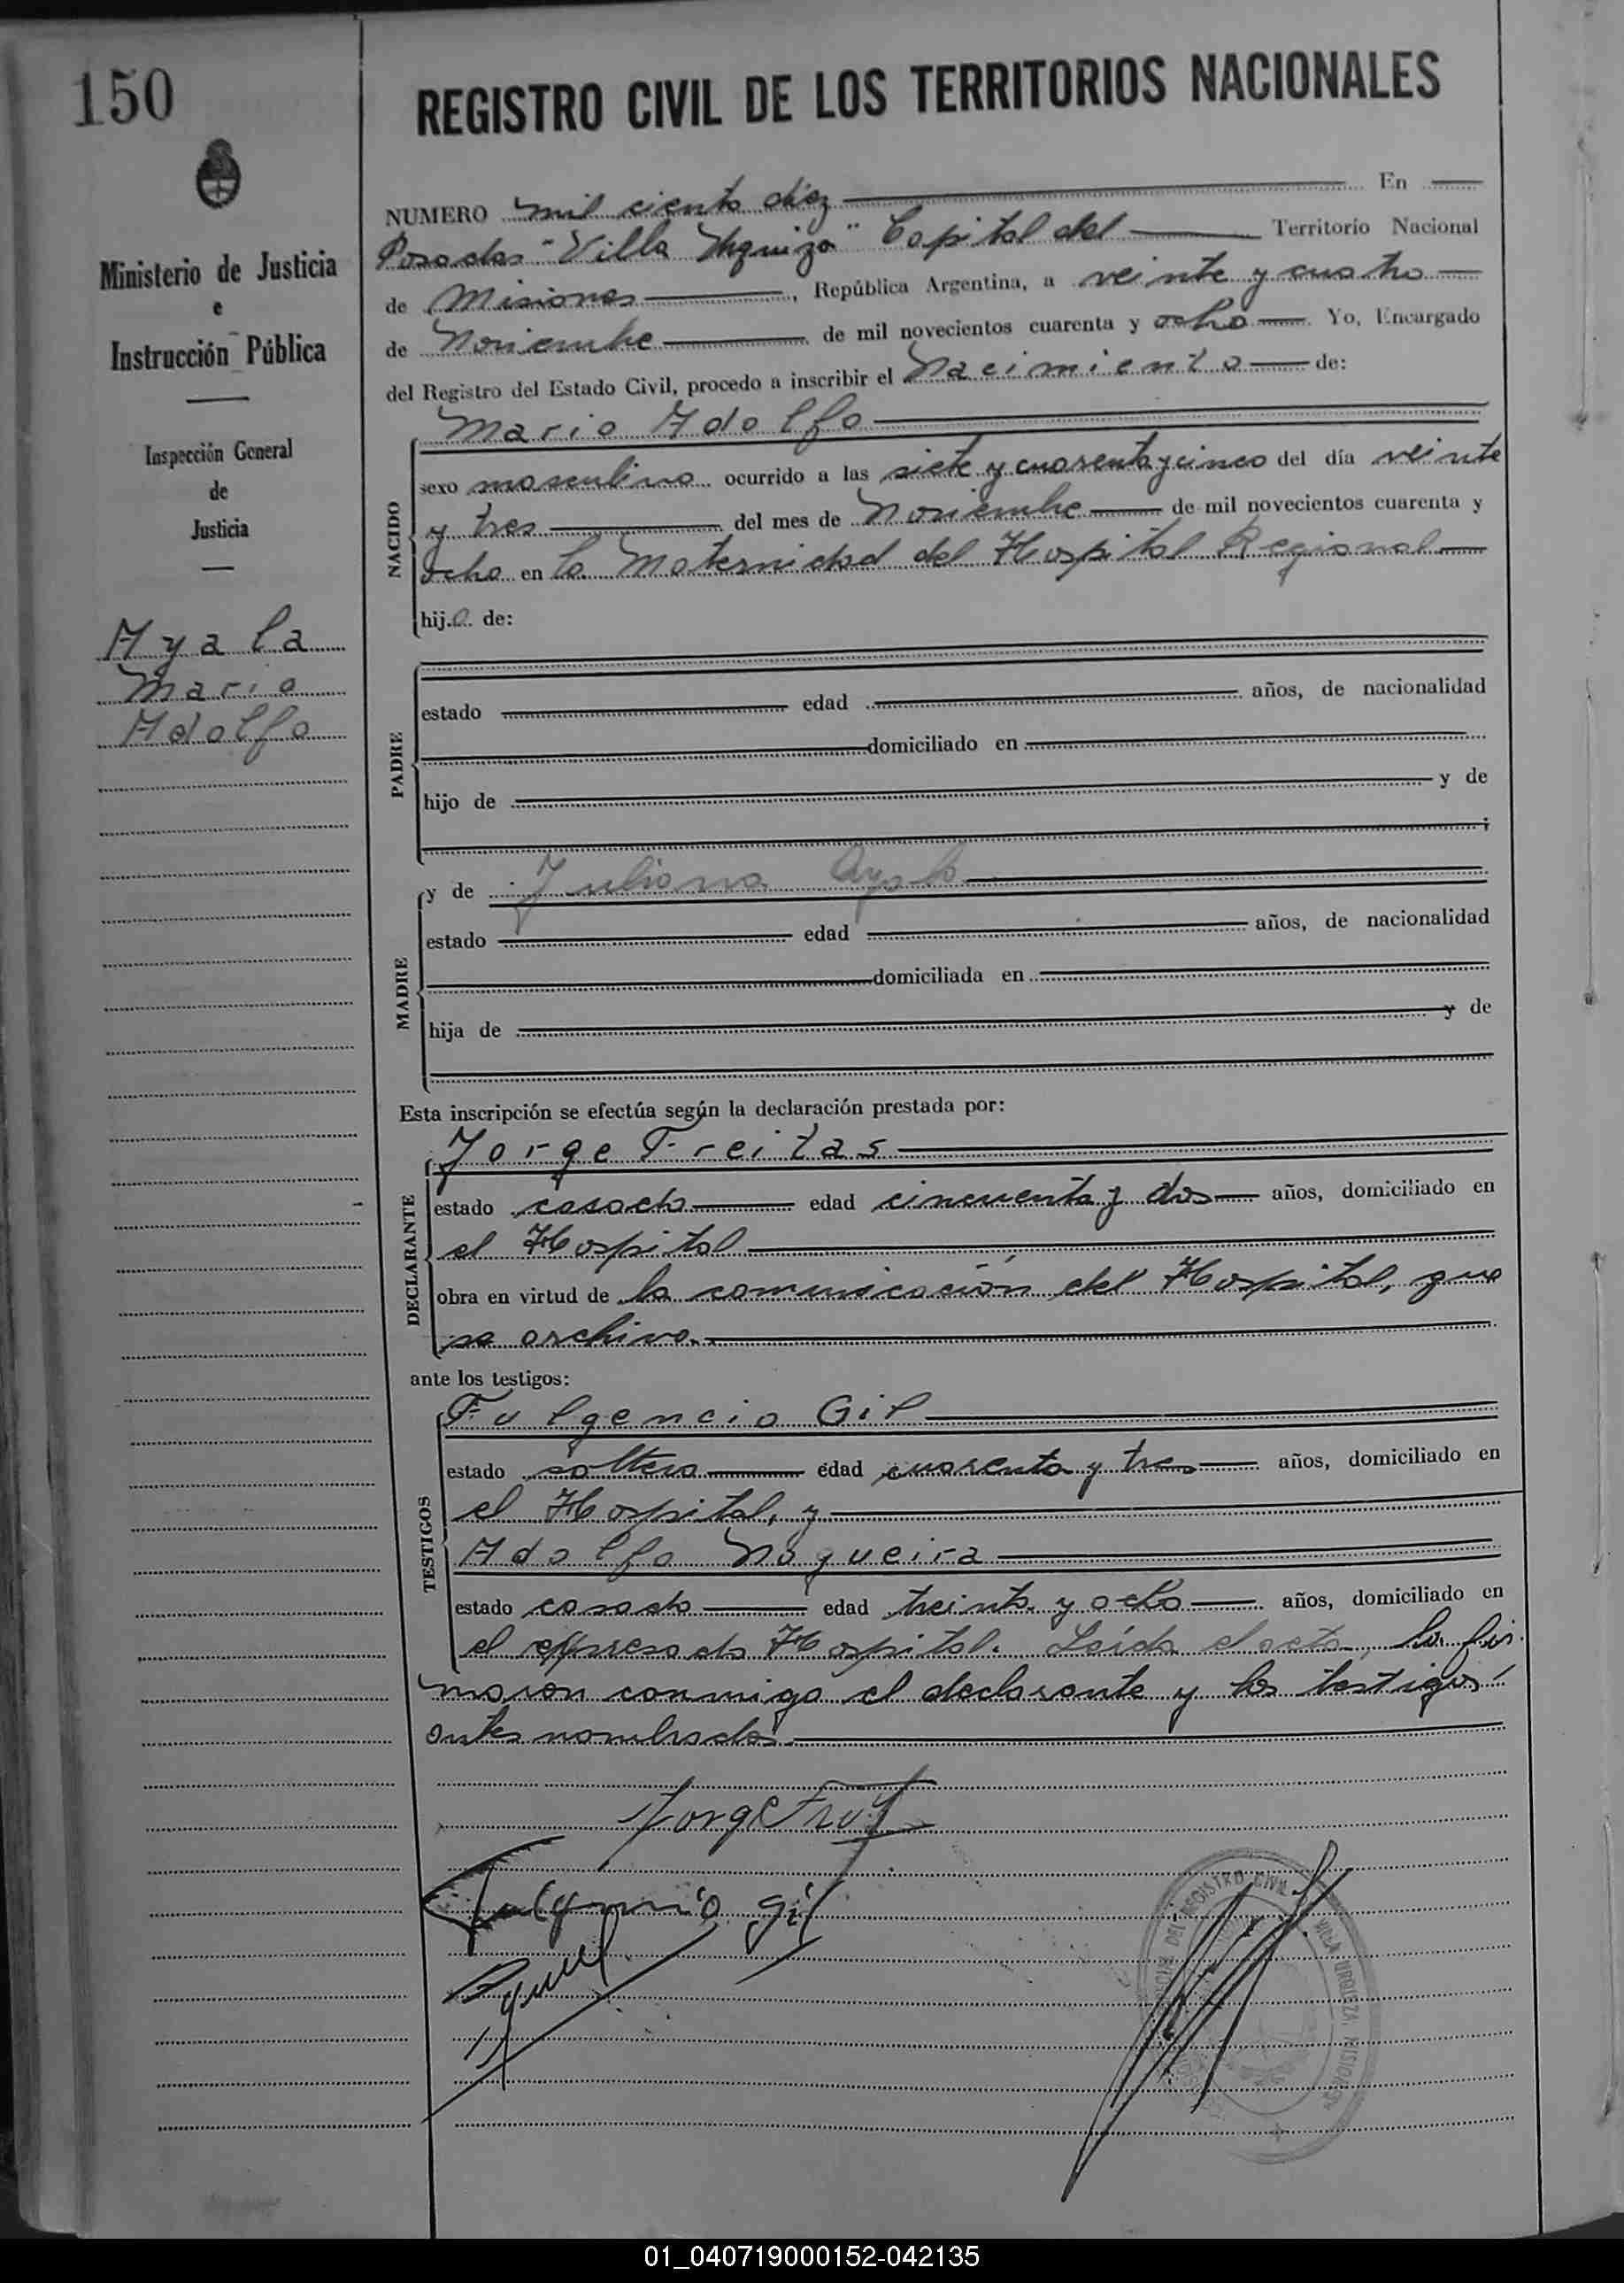 150
REGISTRO CIVIL DE LOS TERRITORIOS NACIONALES
Ministerio de Justicia
e
Instrucción Pública
Inspección General
de
Justicia
Ayala
Mario
Adolfo
NUMERO mil ciento diez En
Posadas "Villa Urquiza" Capital del Territorio Nacional
de Misiones, República Argentina, a veinte y cuatro
de Noviembre de mil novecientos cuarenta y ocho Yo, Encargado
del Registro del Estado Civil, procedo a inscribir el Nacimiento de:
NACIDO
Mario Adolfo
sexo masculino ocurrido a las siete y cuarenta y cinco del día veinte
y tres del mes de Noviembre de mil novecientos cuarenta y
ocho en la Maternidad del Hospital Regional
hijo de:
PADRE
estado edad años, de nacionalidad
domiciliado en
hijo de y de
;
MADRE
y de Juliana Ayala
estado edad años, de nacionalidad
domiciliada en
hija de y de
Esta inscripción se efectúa según la declaración prestada por:
DECLARANTE
Jorge Freitas
estado casado edad cincuenta y dos años, domiciliado en
el Hospital
obra en virtud de la comunicación del Hospital, que
se archiva.
ante los testigos:
TESTIGOS
Fulgencio Gil
estado soltero edad cuarenta y tres años, domiciliado en
el Hospital, y
Adolfo Nogueira
estado casado edad treinta y ocho años, domiciliado en
el expresado Hospital. Leída el acta, la fir
maron conmigo el declarante y los testigos
antes nombrados.
Jorge
Fulgencio Gil
REGISTRO CIVIL
VILLA URQUIZA, MISIONES
01_040719000152-042135